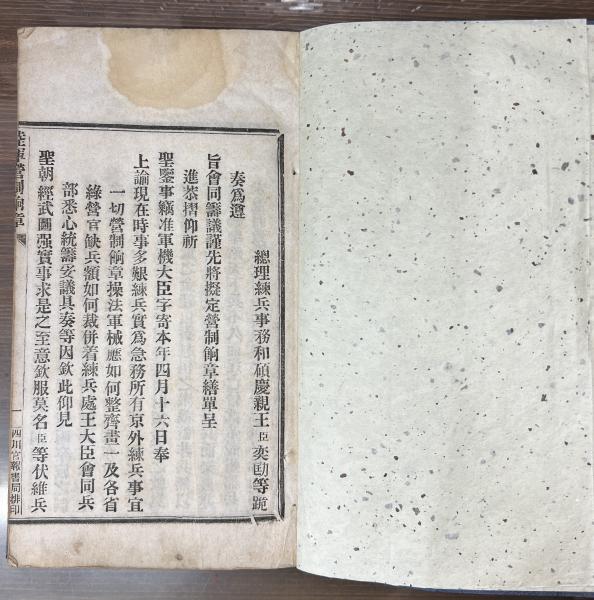 總理練兵事務和碩慶親王臣奕劻等跪
奏為遵
旨會同籌議謹先將擬定營制餉章繕單呈
進恭摺仰祈
聖鑒事竊准軍機大臣字寄本年四月十六日奉
上諭現在時事多艱練兵實為急務所有京外練兵事宜
一切營制餉章操法軍械應如何整齊畫一及各省
綠營官缺兵額如何裁併着練兵處王大臣會同兵
部悉心統籌妥議具奏等因欽此仰見
聖朝經武圖强實事求是之至意欽服莫名臣等伏維兵
陸軍營制餉章
一
四川官報書局排印